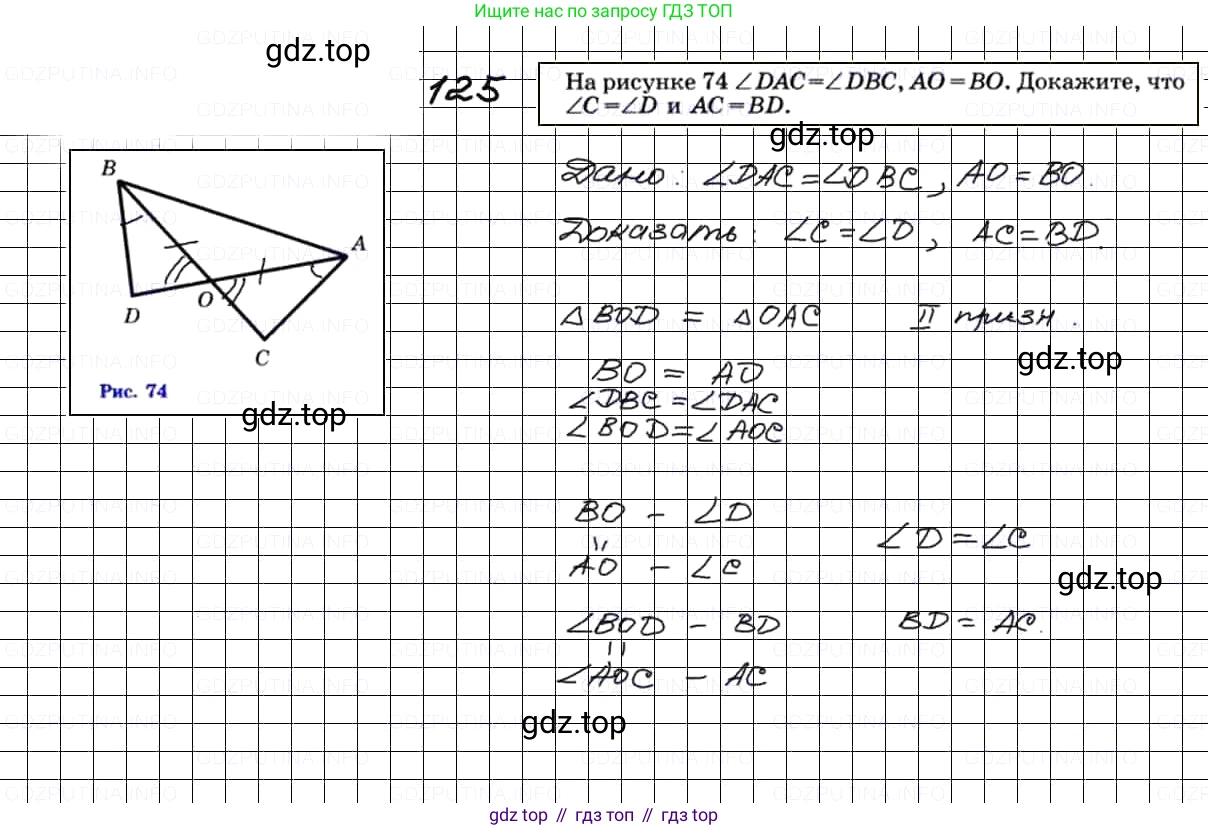 Ищите нас по запросу ГДЗ ТОП
gdz.top
125
На рисунке 74 ∠DAC=∠DBC, AO=BO. Докажите, что
∠C=∠D и AC=BD.
gdz.top
B
A
O
D
C
Рис. 74
gdz.top
Дано: ∠DAC=∠DBC, AO=BO.
Доказать: ∠C=∠D, AC=BD.
△BOD = △OAC II призн.
gdz.top
BO = AO
∠DBC=∠DAC
∠BOD=∠AOC
BO - ∠D
=
AO - ∠C
∠D=∠C
gdz.top
∠BOD - BD
=
∠AOC - AC
BD = AC.
gdz.top
gdz топ // гдз топ // гдз top
GDZPUTINA.INFO